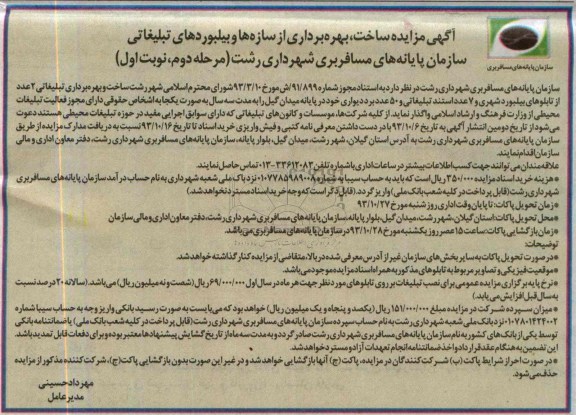 آگهی مزایده ساخت، بهره‌برداری از سازه‌ها و بیلبوردهای تبلیغاتی
سازمان پایانه‌های مسافربری شهرداری رشت (مرحله دوم، نوبت اول)
سازمان پایانه‌های مسافربری
سازمان پایانه‌های مسافربری شهرداری رشت در نظر دارد به استناد مجوز شماره ۹۱/۸۹۹/ش مورخ ۹۳/۳/۱۰ شورای محترم اسلامی شهر رشت ساخت و بهره‌برداری تبلیغاتی ۲ عدد
از تابلوهای بیلبورد شهری و ۷ عدد استند تبلیغاتی و ۵۰ عدد بردیواری خود در پایانه میدان گیل را به مدت سه سال به صورت یکجا به اشخاص حقوقی دارای مجوز فعالیت تبلیغات
محیطی از وزارت فرهنگ و ارشاد اسلامی واگذار نماید. از کلیه شرکت‌ها، موسسات و کانون‌های تبلیغاتی که دارای سوابق اجرایی مفید در حوزه تبلیغات محیطی هستند دعوت
می‌شود از تاریخ دومین انتشار آگهی به تاریخ ۹۳/۱۰/۶ با در دست داشتن معرفی نامه کتبی و فیش واریزی خرید اسناد تا تاریخ ۹۳/۱۰/۱۶ نسبت به دریافت مدارک مزایده از طریق
سازمان پایانه‌های مسافربری شهرداری رشت به آدرس استان گیلان، شهر رشت، میدان گیل، بلوار پایانه، سازمان پایانه‌های مسافربری شهرداری رشت، دفتر معاون اداری و مالی
سازمان اقدام نمایند.
علاقه‌مندان می‌توانند جهت کسب اطلاعات بیشتر در ساعات اداری با شماره تلفن ۳۳۶۱۲۰۸۳-۰۱۳ تماس حاصل نمایند.
*هزینه خرید اسناد مزایده ۳۵۰/۰۰۰ ریال است که باید به حساب سیبا به شماره ۰۱۰۷۷۸۵۹۸۹۰۰۸ نزد بانک ملی شعبه شهرداری به نام حساب درآمد سازمان پایانه‌های مسافربری
شهرداری رشت (قابل پرداخت در کلیه شعب بانک ملی) واریز گردد. (قابل ذکر است که وجه خرید اسناد مسترد نخواهد شد.)
*زمان تحویل پاکات: تا پایان وقت اداری روز شنبه مورخ ۹۳/۱۰/۲۷
*محل تحویل پاکات: استان گیلان، شهر رشت، میدان گیل، بلوار پایانه، سازمان پایانه‌های مسافربری شهرداری رشت، دفتر معاون اداری و مالی سازمان
*زمان بازگشایی پاکات: ساعت ۱۵ عصر روز یکشنبه مورخ ۹۳/۱۰/۲۸ در سازمان پایانه‌های مسافربری می‌باشد.
توضیحات:
*در صورت تحویل پاکات به سایر بخش‌های سازمان غیر از آدرس معرفی شده در بالا، متقاضی از مزایده کنار گذاشته خواهد شد.
*موقعیت فیزیکی و تصاویر مربوط به تابلوهای مذکور به همراه اسناد مزایده موجود می‌باشد.
*نرخ پایه برگزاری مزایده عمومی برای نصب تبلیغات بر روی تابلوهای مورد نظر جهت هر ماه در سال اول ۶۹/۰۰۰/۰۰۰ ریال (شصت و نه میلیون ریال) می‌باشد. (سالانه ۲۰ درصد نسبت
به سال قبل افزایش می‌یابد)
*میزان سپرده شرکت در مزایده مبلغ ۱۵۱/۰۰۰/۰۰۰ ریال (یکصد و پنجاه و یک میلیون ریال) خواهد بود که می‌بایست به صورت رسید بانکی واریز وجه به حساب سیبا شماره
نزد بانک ملی شعبه شهرداری رشت به نام حساب سپرده سازمان پایانه‌های مسافربری شهرداری رشت (قابل پرداخت در کلیه شعب بانک ملی) یا ضمانتنامه بانکی
توسط یکی از بانک‌های کشور به نام سازمان پایانه‌های مسافربری شهرداری رشت صادر گردد و به مدت سه ماه از تاریخ گشایش پیشنهادها معتبر بوده و برای دفعات قابل تمدید باشد.
این تضمین به هنگام عقد قرارداد و اخذ ضمانتنامه انجام تعهدات آزاد و مسترد خواهد شد.
*در صورت احراز شرایط پاکت (ب) شرکت کنندگان در مزایده، پاکت (ج) آنها بازگشایی خواهد شد و در غیر این صورت بدون بازگشایی پاکت (ج)، شرکت کننده مذکور از مزایده
حذف می‌شود.
مهرداد حسینی
مدیرعامل